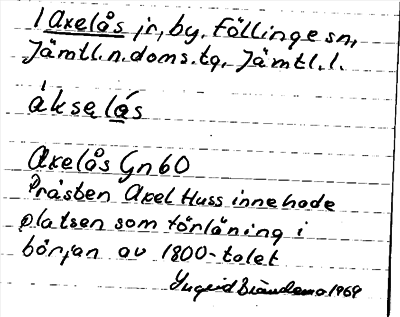 1 Axelås jr, by. Föllinge sn,
Jämtl.n.doms.tg. Jämtl.l.
áksęlą́s
Axelås Gn 60
Prästen Axel Huss innehade
platsen som förläning i
början av 1800-talet
Ingrid 1969